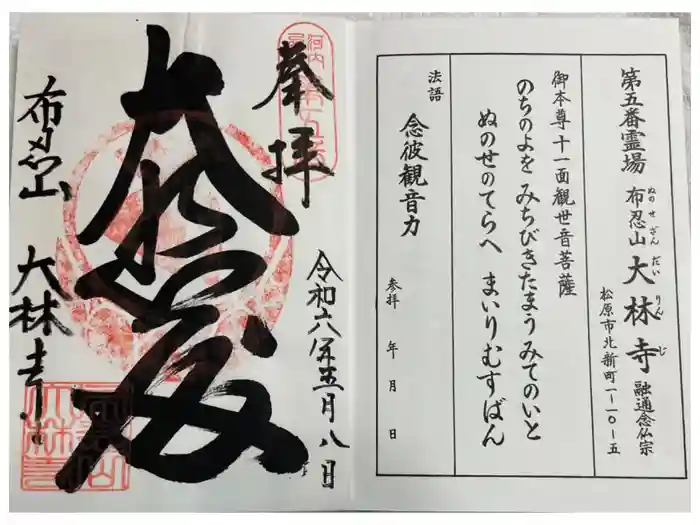 第五番霊場 布忍山 大林寺 融通念仏宗
ぬの せ ざん だい りん じ
松原市北新町一ー一〇ー五
御本尊十一面観世音菩薩
のちのよを みちびきたまう みてのいと
ぬのせのてらへ まいりむすばん
法語
念彼観音力
参拝 年 月 日
奉拝
令和六年五月八日
大悲殿
布忍山 大林寺
河内